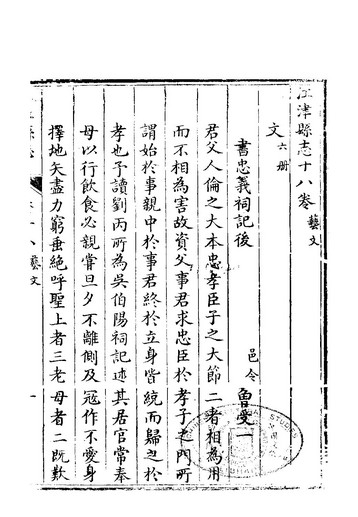 江津縣志十八卷 藝文
文 六册
書忠義祠記後
邑令 魯受一
君父人倫之大本忠孝臣子之大節二者相為用
而不相為害故資父事君求忠臣於孝子之門所
謂始於事親中於事君終於立身皆統而歸之於
孝也予讀劉丙所為吳伯陽祠記述其居官常奉
母以行飲食必親嘗旦夕不離側及冠作不愛身
擇地矢盡力窮垂絶呼聖上者三老母者二既歎
縣志
十八 藝文
一